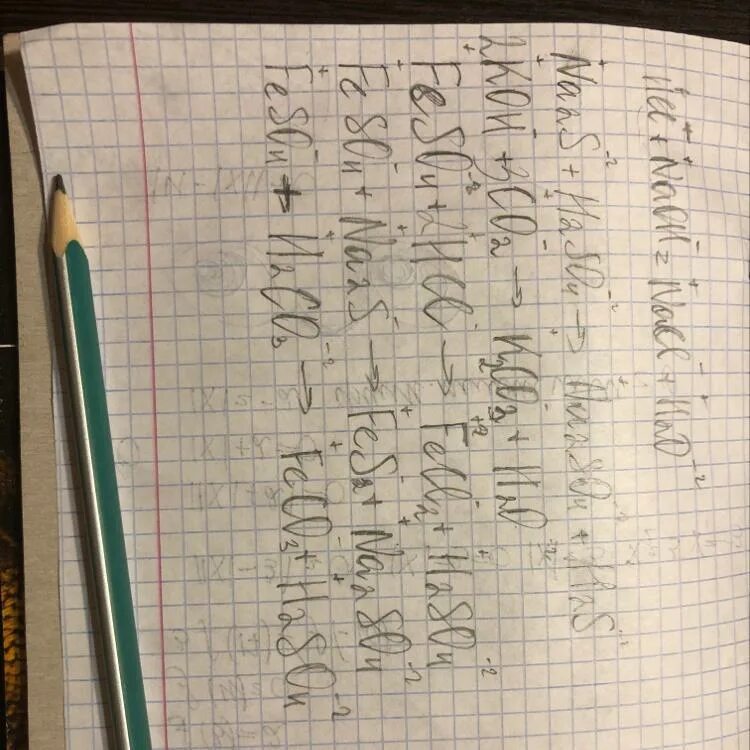 HCl + NaOH = NaCl + H2O
Na2S + H2SO4 → Na2SO4 + H2S
2KOH + CO2 → K2CO3 + H2O
FeSO4 + 2HCl → FeCl2 + H2SO4
FeSO4 + Na2S → FeS2 + Na2SO4
FeSO4 + H2CO3 → FeCO3 + H2SO4